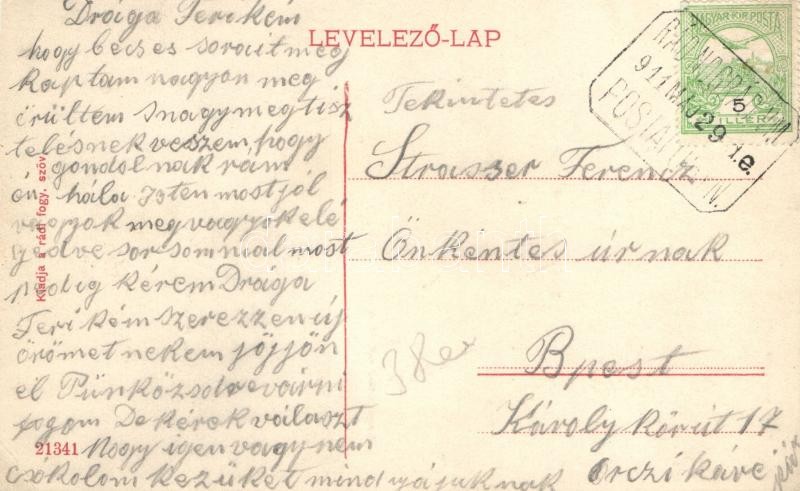 LEVELEZŐ-LAP
Drága Terikém
hogy becses sorait meg
kaptam nagyon meg
örültem s nagy megtisz
telésnek veszem, hogy
gondolnak rám
én hála Isten most jól
vagyok megvagyok elé
gedve sorsommal most
pedig kérem Drága
Terikém szerezzen új
örömet nekem jöjjön
el Pünközsdre várni
fogom De kérek választ
Hogy igen vagy nem
csókolom kezüket mindnyájuknak
Kiadja a rádi fogy. szöv.
21341
MAGYAR KIR. POSTA
5
FILLÉR
911 MÁJ 29
POSTAI
Tekintetes
Strasser Ferencz
Önkentes úrnak
Bpest
Károly körút 17
Orczi káve
38er